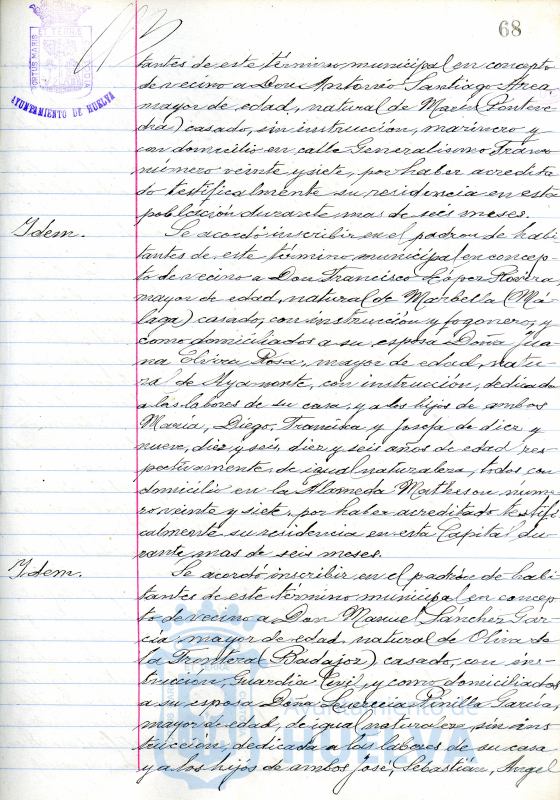 68
PORTUS MARIS ET TERRAE CUSTODIA
AYUNTAMIENTO DE HUELVA
tantes de este término municipal en concepto
de vecino a Don Antonio Santiago Area,
mayor de edad, natural de Marín (Ponteve
dra) casado, sin instrucción, marinero y
con domicilio en calle Generalísimo Franco
número veinte y siete, por haber acredita
do testificalmente su residencia en esta
población durante mas de seis meses.
Idem.
Se acordó inscribir en el padrón de habi
tantes de este término municipal en concep
to de vecino a Don Francisco López Rivera,
mayor de edad, natural de Marbella (Má
laga) casado, con instrucción y fogonero, y
como domiciliados a su esposa Doña Jua
na Rosa, mayor de edad, natu
ral de Ayamonte, con instrucción, dedicada
a las labores de su casa, y a los hijos de ambos
María, Diego, Francisca y Josefa de diez y
nueve, diez y seis, diez y seis años de edad res
pectivamente, de igual naturaleza, todos con
domicilio en la Alameda Matheson núme
ro veinte y siete, por haber acreditado testifi
calmente su residencia en esta Capital du
rante mas de seis meses.
Idem.
Se acordó inscribir en el padrón de habi
tantes de este término municipal en concep
to de vecino a Don Manuel Sánchez Gar
cía, mayor de edad, natural de Oliva de
la Frontera (Badajoz) casado, con ins
trucción, Guardia Civil, y como domiciliados
a su esposa Doña Lucrecia Pinilla García,
mayor de edad, de igual naturaleza, sin ins
trucción, dedicada a las labores de su casa
y a los hijos de ambos José, Sebastián, Angel
Ayuntamiento de
HUELVA